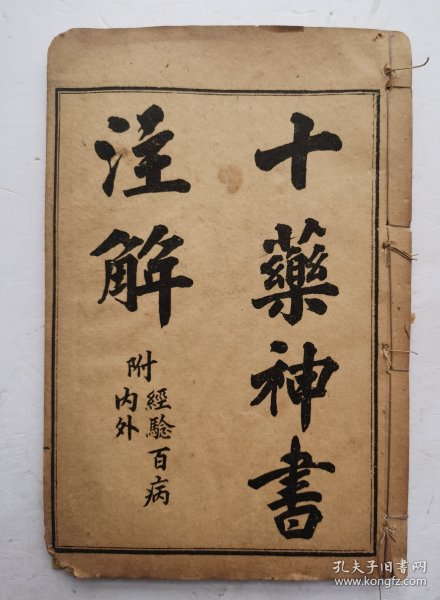 十藥神書
注解
附經驗百病
内外
孔夫子旧书网
www.kongfz.com